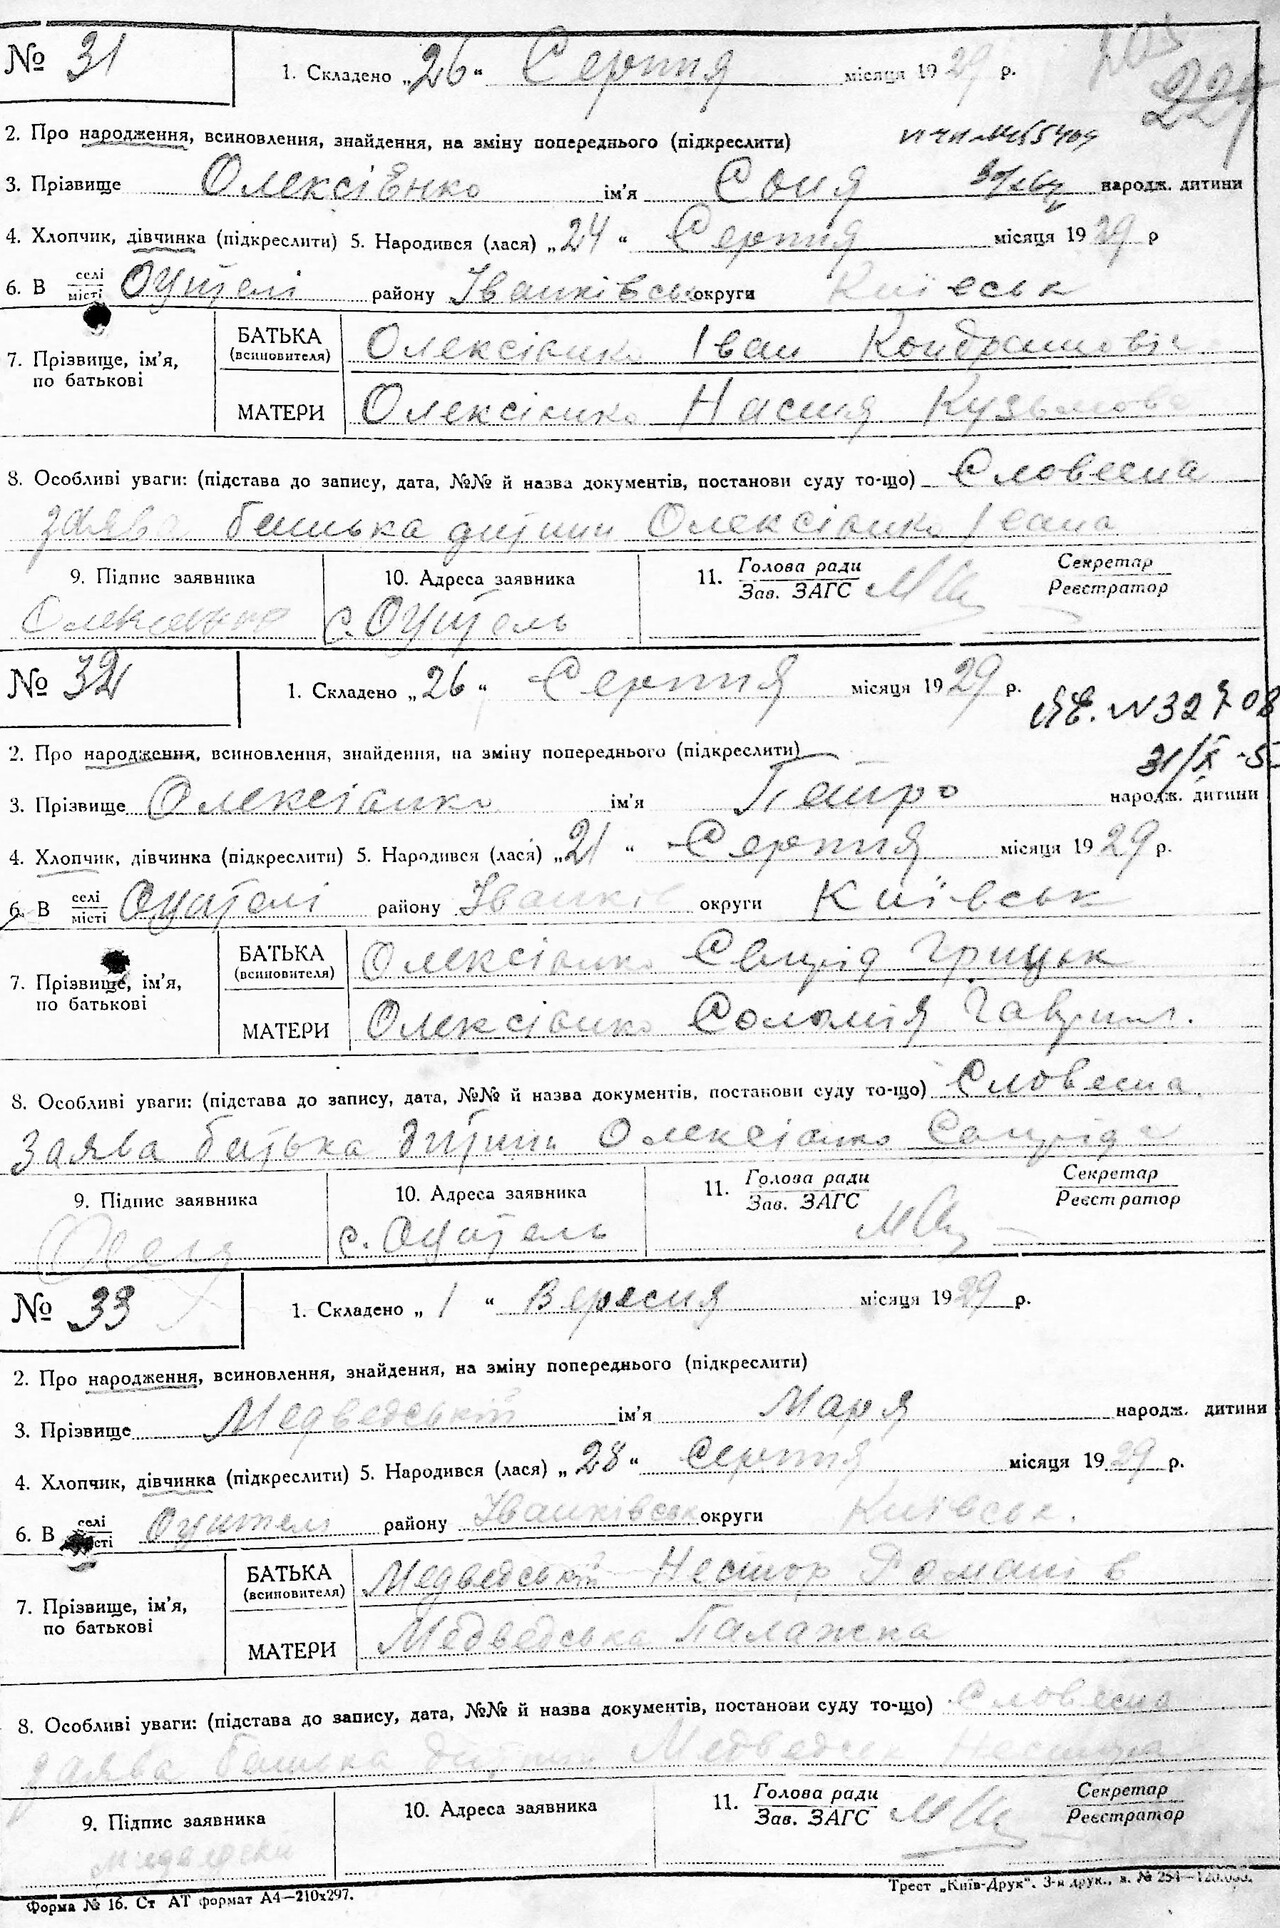 № 31 1. Складено „26" Серпня місяця 1929 р. 227
2. Про народження, всиновлення, знайдення, на зміну попереднього (підкреслити)
3. Прізвище Олексієнко ім'я Соня народж. дитини
4. Хлопчик, дівчинка (підкреслити) 5. Народився (лася) „24" Серпня місяця 1929 р
6. В селі місті Оцителі району Іванківськ округи Київськ
7. Прізвище, ім'я, по батькові
БАТЬКА (всиновителя) Олексієнко Іван Кондратовіч
МАТЕРИ Олексієнко Настя Кузьмова
8. Особливі уваги: (підстава до запису, дата, №№ й назва документів, постанови суду то-що) Словесна
заява батька дитини Олексієнко Івана
9. Підпис заявника 10. Адреса заявника 11. Голова ради Зав. ЗАГС Секретар Реєстратор
Олексієнко с. Оцитель
№ 32 1. Складено „26" Серпня місяця 1929 р.
N 32708
2. Про народження, всиновлення, знайдення, на зміну попереднього (підкреслити)
31/X
3. Прізвище Олексієнко ім'я Петро народж. дитини
4. Хлопчик, дівчинка (підкреслити) 5. Народився (лася) „21" Серпня місяця 1929 р.
6. В селі місті Оцителі району Іванків округи Київськ
7. Прізвище, ім'я, по батькові
БАТЬКА (всиновителя) Олексієнко Свирід Грицьк
МАТЕРИ Олексієнко Соломія Гаврил.
8. Особливі уваги: (підстава до запису, дата, №№ й назва документів, постанови суду то-що) Словесна
Заява батька дитини Олексієнко Свирида
9. Підпис заявника 10. Адреса заявника 11. Голова ради Зав. ЗАГС Секретар Реєстратор
с. Оцитель
№ 33 1. Складено „1" Вересня місяця 1929 р.
2. Про народження, всиновлення, знайдення, на зміну попереднього (підкреслити)
3. Прізвище Медведський ім'я Маря народж. дитини
4. Хлопчик, дівчинка (підкреслити) 5. Народився (лася) „28" Серпня місяця 1929 р.
6. В селі місті Оцителі району Іванківськ округи Київськ.
7. Прізвище, ім'я, по батькові
БАТЬКА (всиновителя) Медведський Нестор Романів
МАТЕРИ Медведська Палажка
8. Особливі уваги: (підстава до запису, дата, №№ й назва документів, постанови суду то-що) Словесна
заява батька дитини Медведськ Нестора
9. Підпис заявника 10. Адреса заявника 11. Голова ради Зав. ЗАГС Секретар Реєстратор
Форма № 16. Ст АТ формат А4—210х297. Трест „Київ-Друк". 3-я друк., з. № 254—120.000.